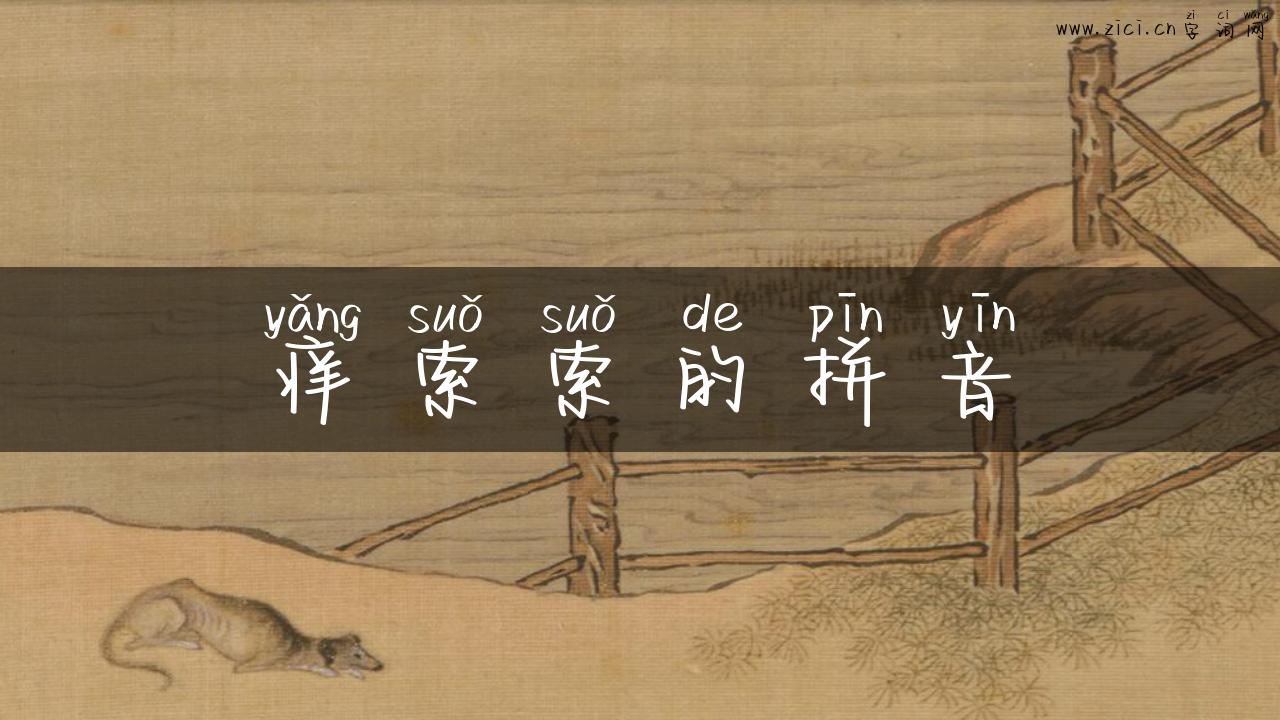 zì cí wǎng
www.zici.cn 字词网
yǎng suǒ suǒ de pīn yīn
痒索索的拼音